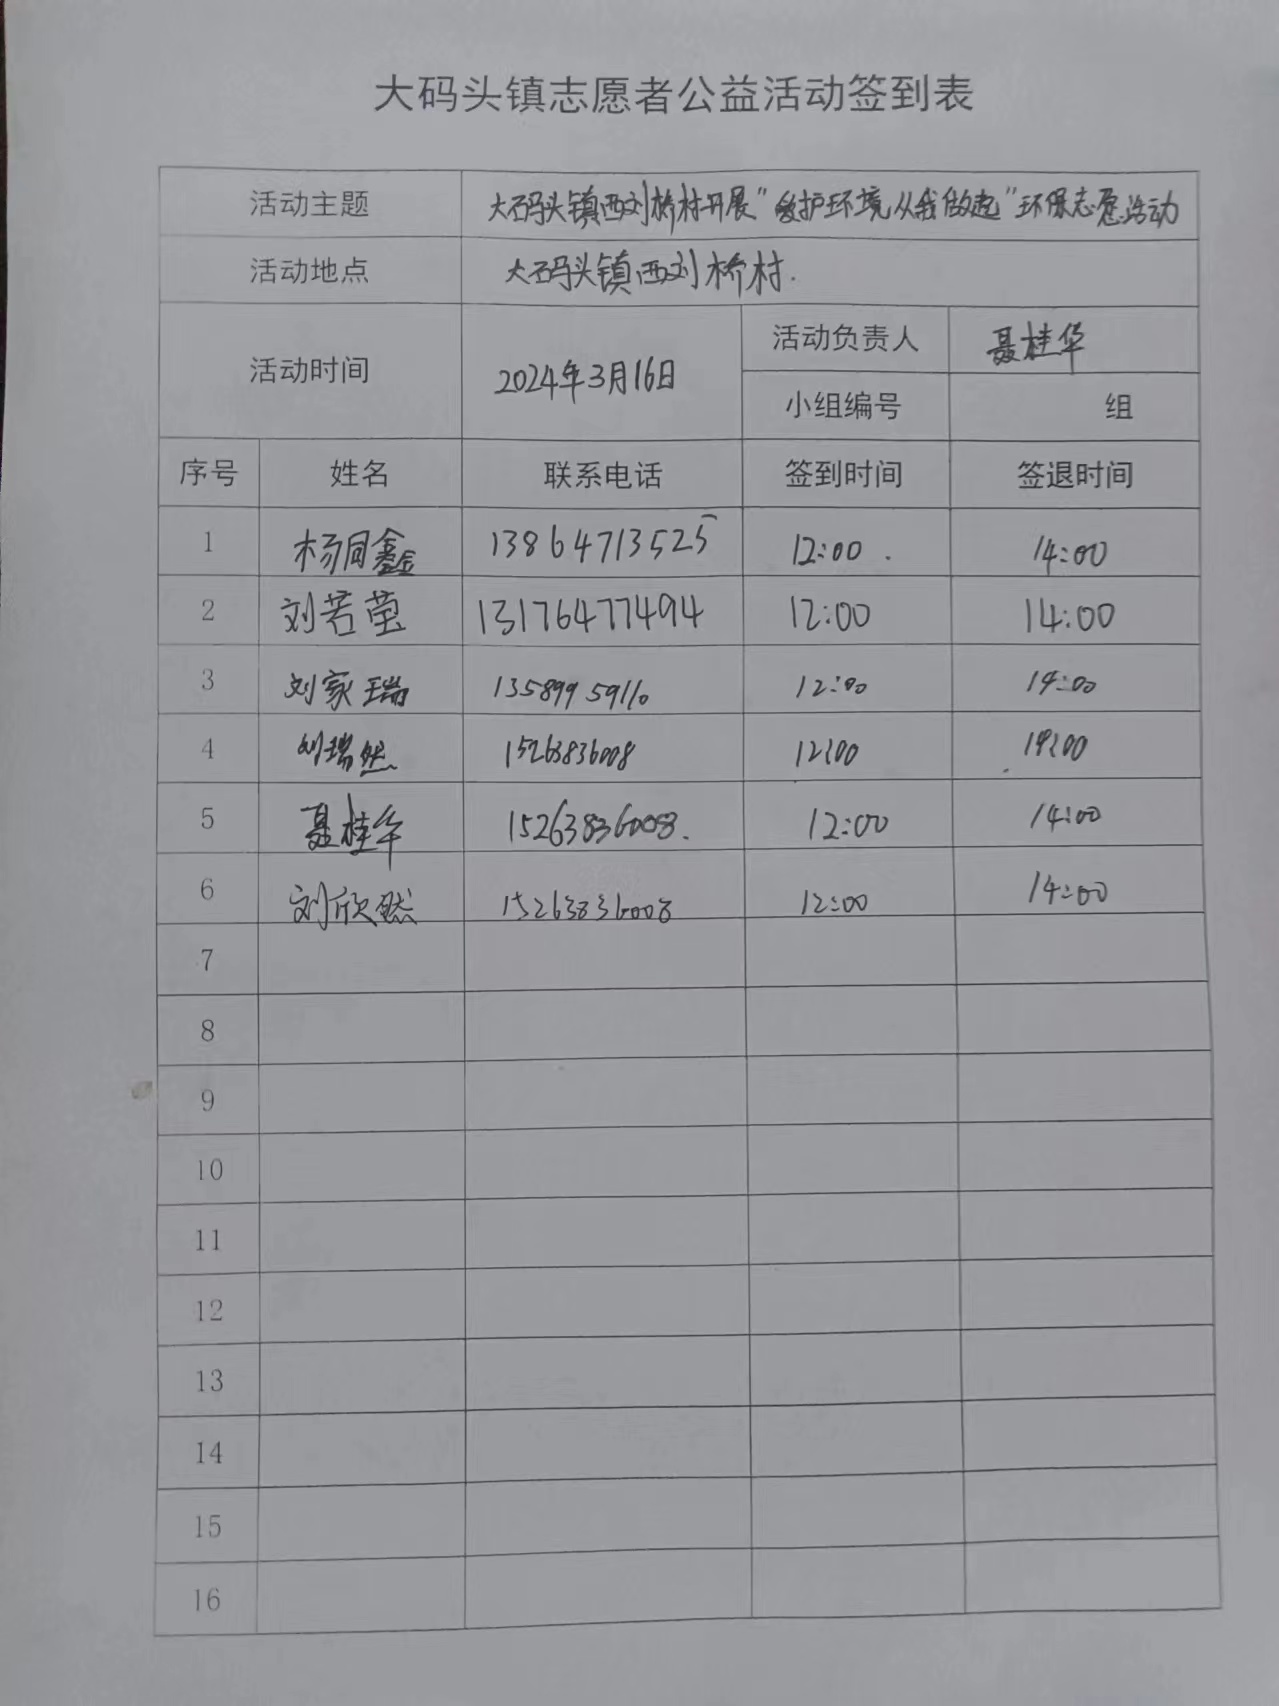 大码头镇志愿者公益活动签到表
活动主题 大码头镇西刘桥村开展"爱护环境从我做起"环保志愿活动
活动地点 大码头镇西刘桥村.
活动时间 2024年3月16日 活动负责人 聂桂华
小组编号 组
序号 姓名 联系电话 签到时间 签退时间
1 杨同鑫 13864713525 12:00 14:00
2 刘若莹 13176477494 12:00 14:00
3 刘家瑞 13589959110 12:00 14:00
4 刘瑞然 15263836008 12:00 14:00
5 聂桂华 15263836008. 12:00 14:00
6 刘欣然 15263836008 12:00 14:00
7
8
9
10
11
12
13
14
15
16